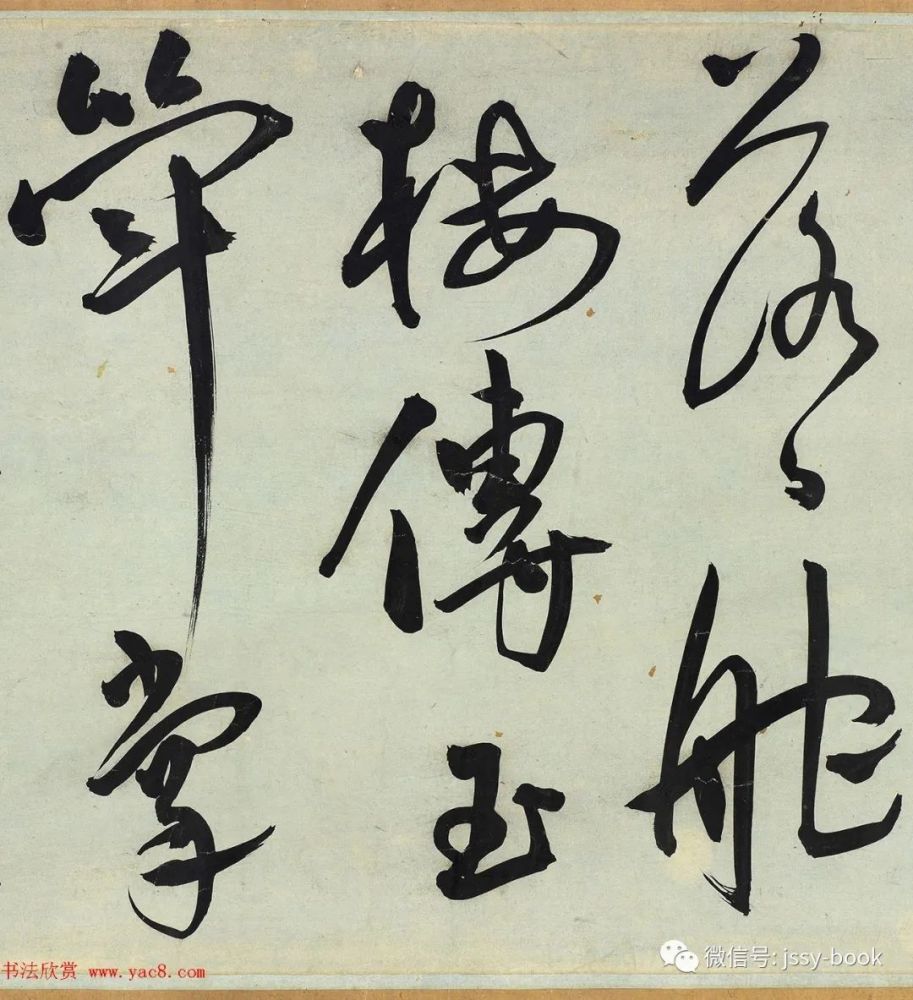 落〻舵
樓傳玉
斝掌
书法欣赏 www.yac8.com
微信号: jssy-book